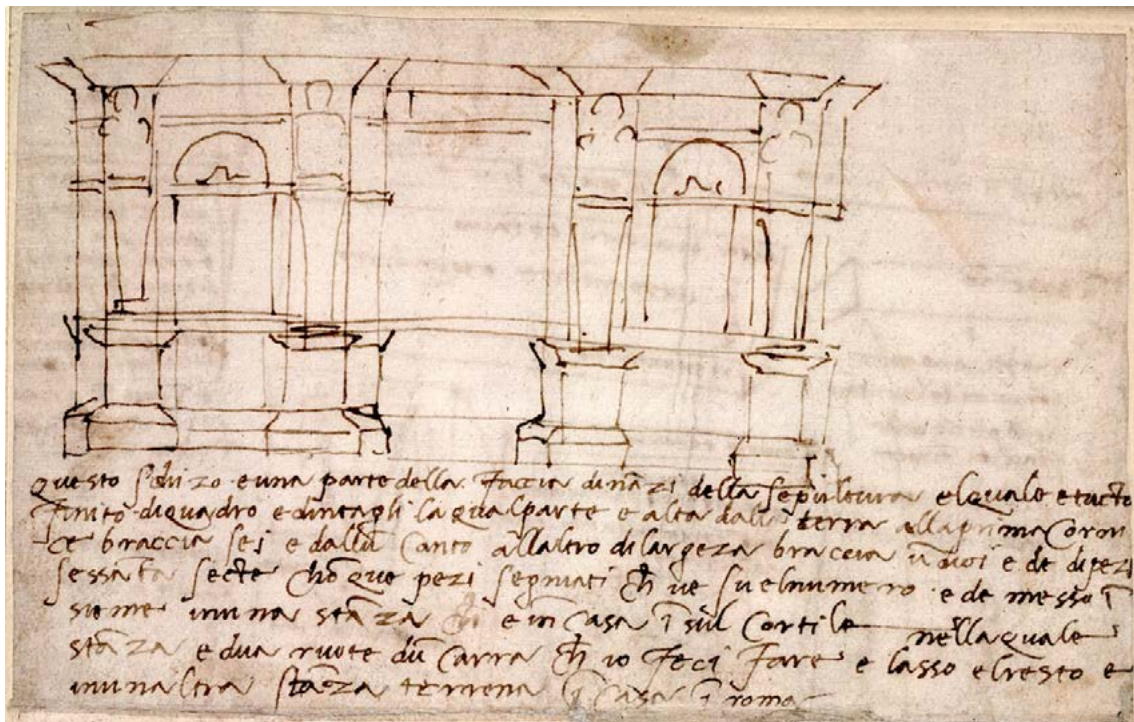 questo schizo e una parte della faccia dināzi della sepultura elquale e tucto
finito diquadro e dintagli laqual parte e alta dalla terra alla prima corni
ce braccia sei e dallū canto allaltro di largeza braccia e de di pezi
sessāta secte pezi segniati ch ve su elnumero e de messo ī
sieme inuna stāza e in casa ī sul cortile nella quale
stāza e dua ruote dū carra ch io feci fare e lasso elresto e
inunaltra stāza terrena ī casa ī roma